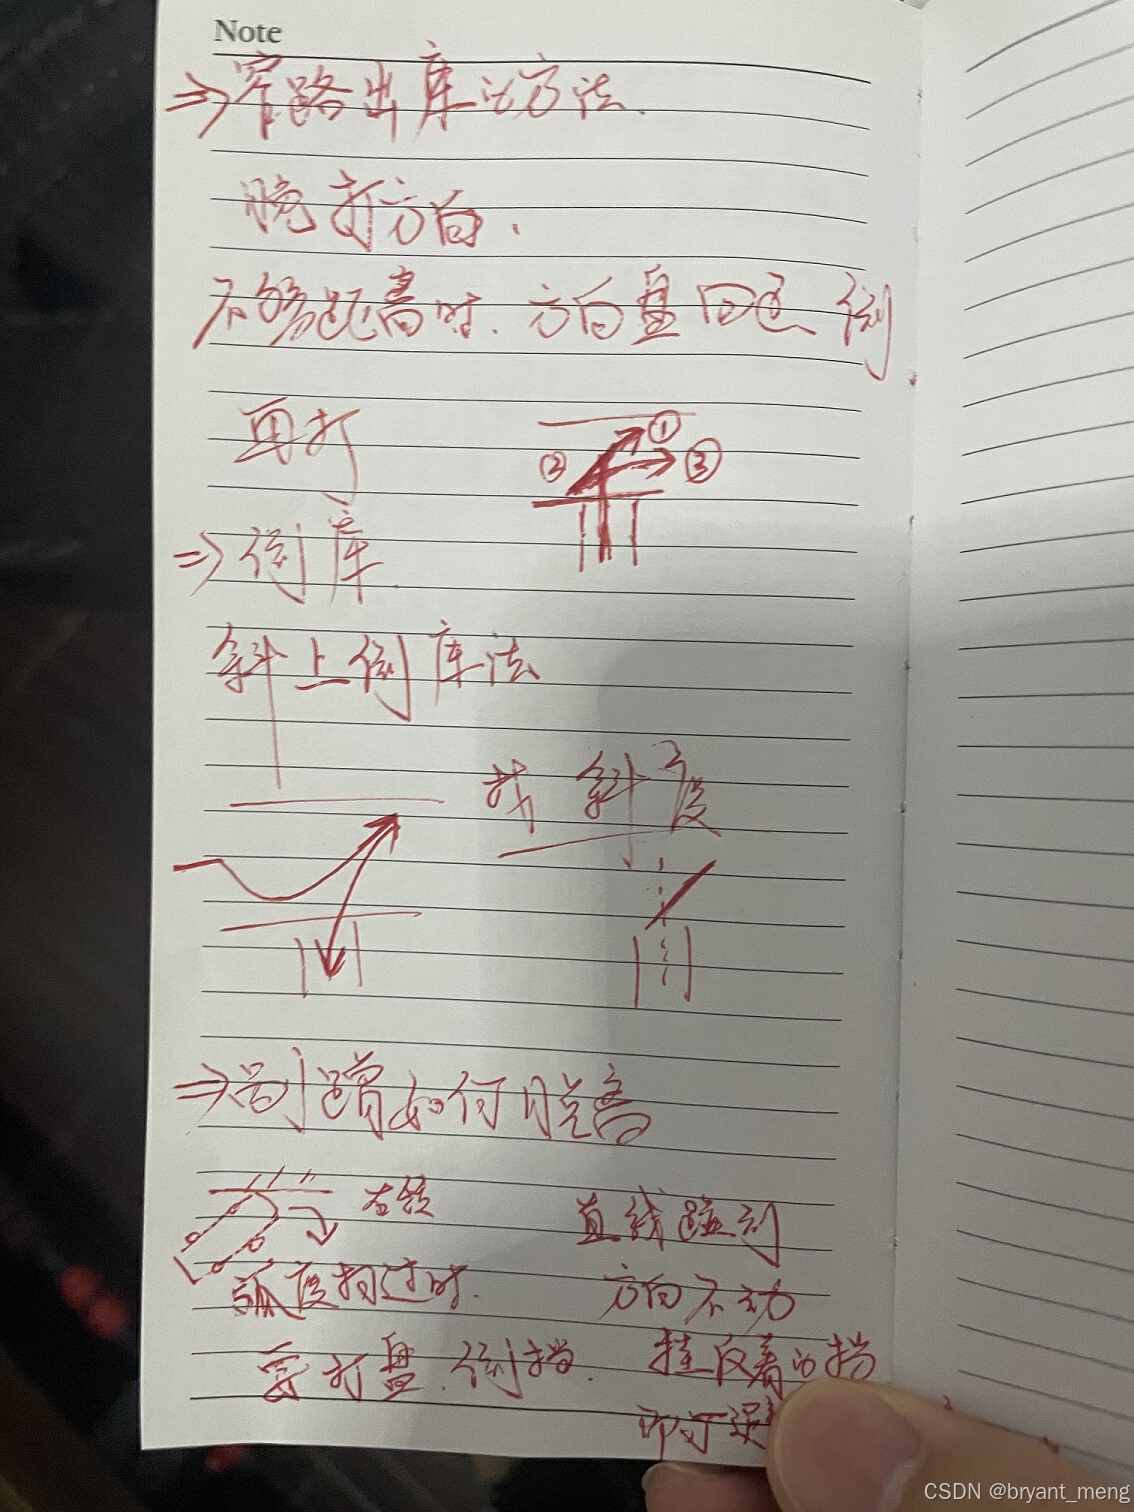 Note
⇒窄路出库的方法.
晚打方向.
不够距离时.方向盘回正倒
再打
① ② ③
⇒倒库.
斜上倒库法
找斜度
⇒剐蹭如何脱离
右转
弧度打过时.
要打盘.倒挡.
直线蹭到
方向不动
挂反着的挡
即可
CSDN @bryant_meng